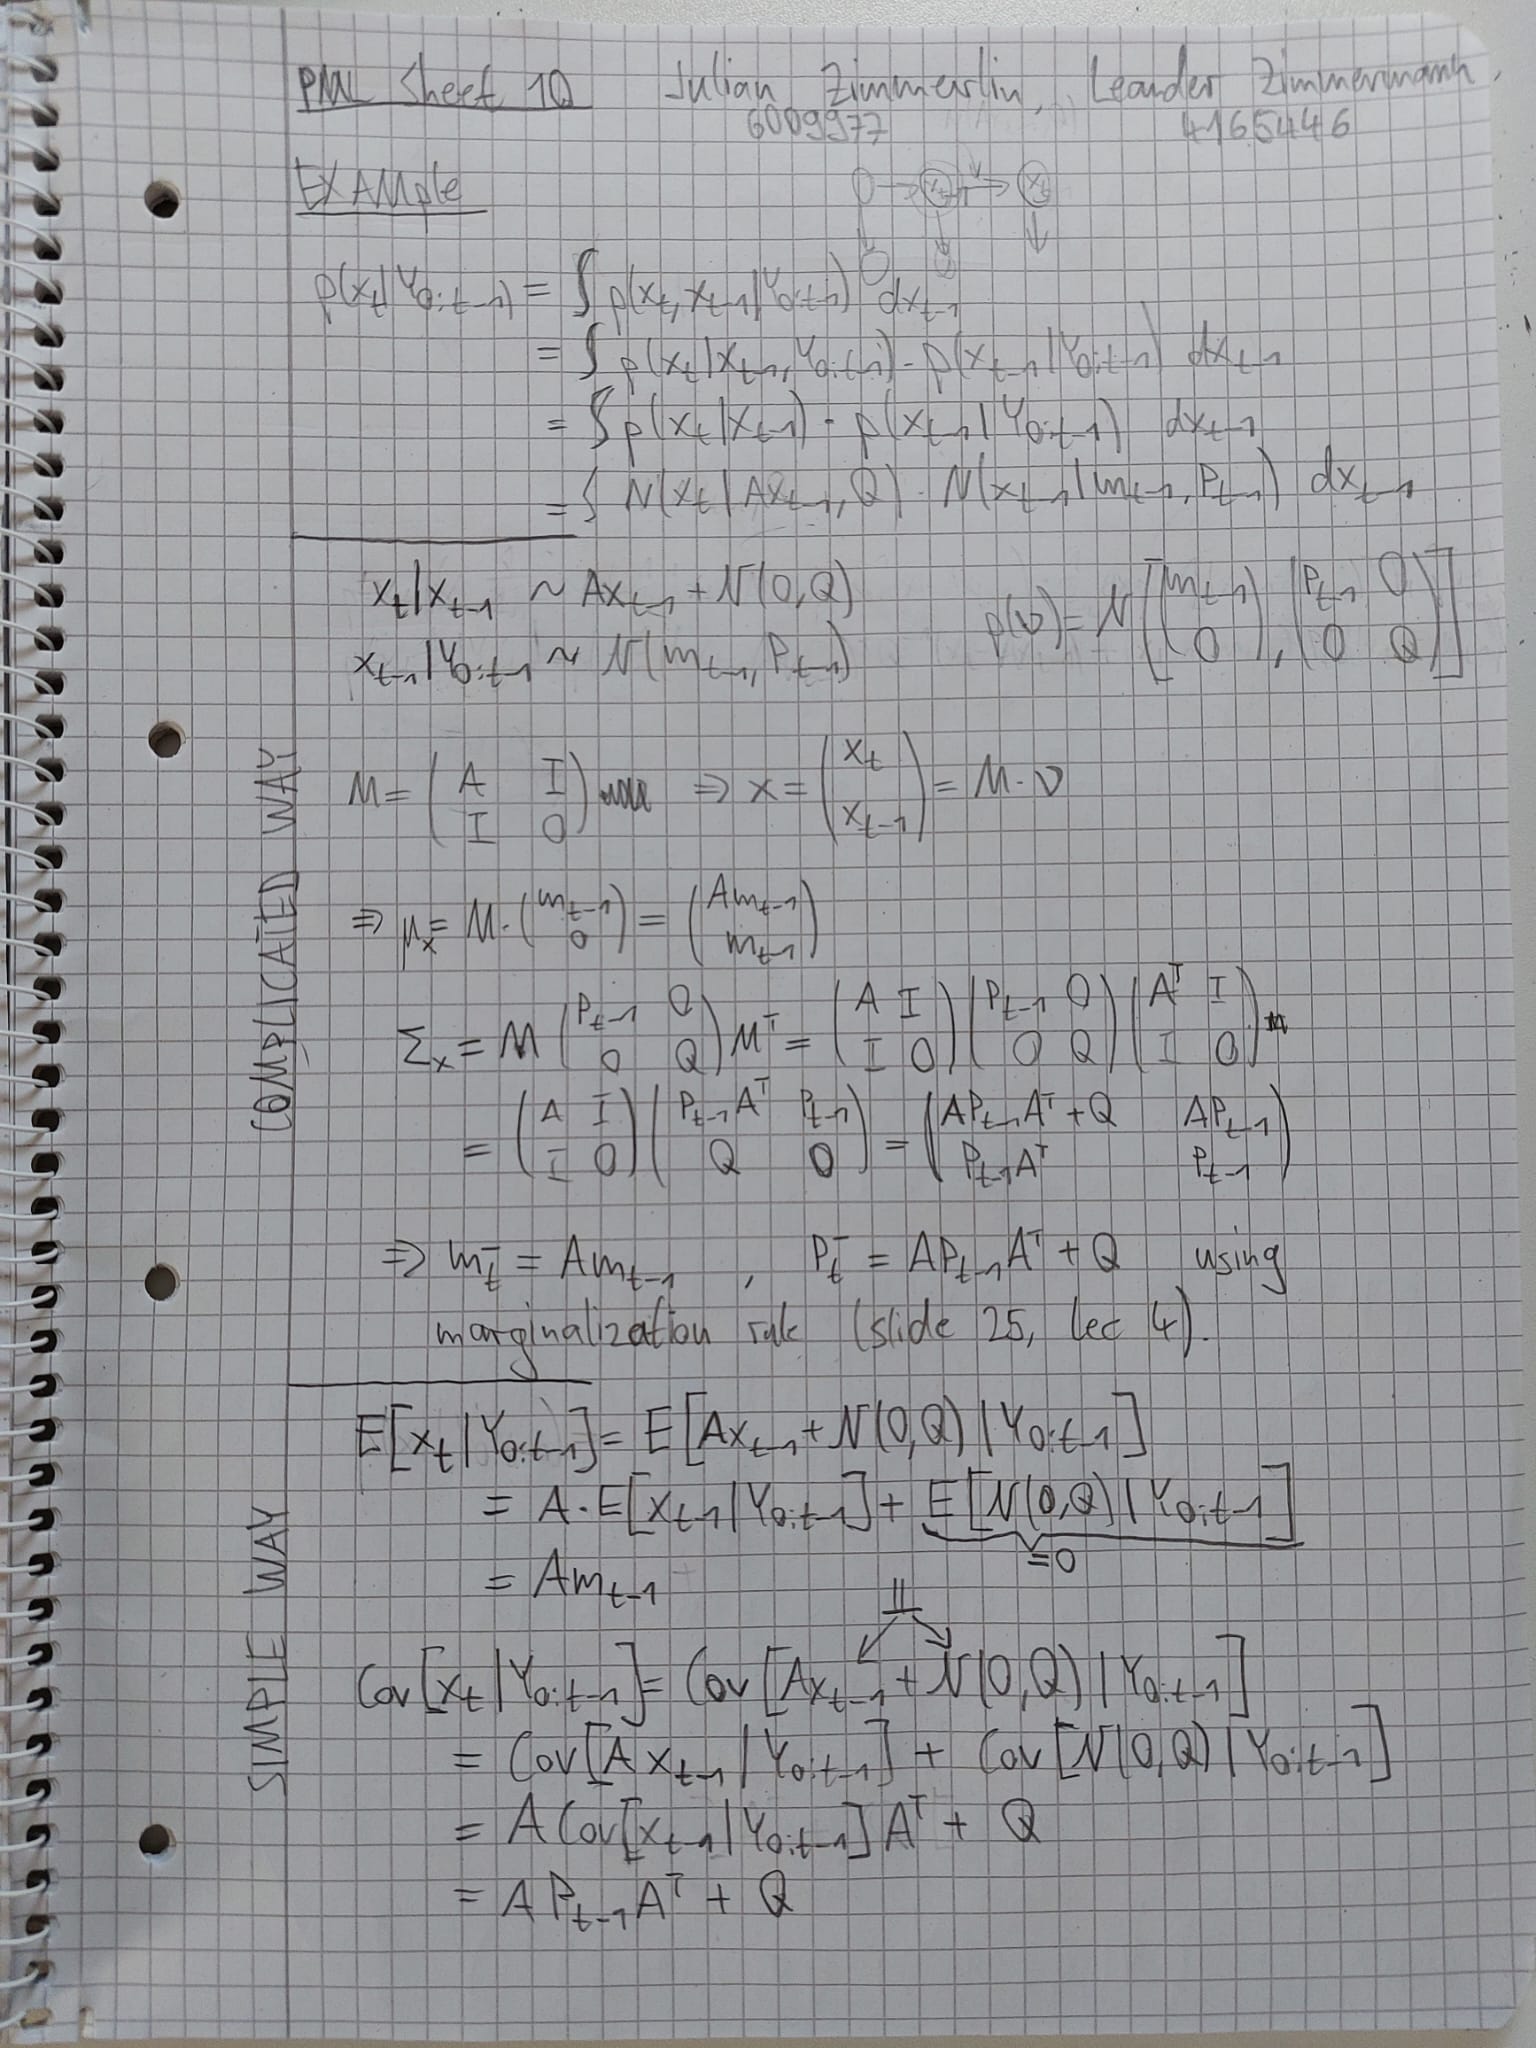 PML Sheet 10 Julian Zimmerlin, Leander Zimmermann,
6009977 4165446
EXAMple
x_{t-1} → x_t
p(x_t|Y_{0:t-1}) = ∫ p(x_t, x_{t-1}|Y_{0:t-1}) dx_{t-1}
= ∫ p(x_t|x_{t-1}, Y_{0:t-1}) · p(x_{t-1}|Y_{0:t-1}) dx_{t-1}
= ∫ p(x_t|x_{t-1}) · p(x_{t-1}|Y_{0:t-1}) dx_{t-1}
= ∫ N(x_t|Ax_{t-1}, Q) · N(x_{t-1}|m_{t-1}, P_{t-1}) dx_{t-1}
x_t|x_{t-1} ~ Ax_{t-1} + N(0,Q)
x_{t-1}|Y_{0:t-1} ~ N(m_{t-1}, P_{t-1}) p(ν) = N[(m_{t-1} ; 0), (P_{t-1} 0 ; 0 Q)]
COMPLICATED WAY
M = (A I ; I 0) ⇒ x = (x_t ; x_{t-1}) = M·ν
⇒ μ_x = M·(m_{t-1} ; 0) = (Am_{t-1} ; m_{t-1})
Σ_x = M (P_{t-1} 0 ; 0 Q) M^T = (A I ; I 0)(P_{t-1} 0 ; 0 Q)(A^T I ; I 0)
= (A I ; I 0)(P_{t-1}A^T P_{t-1} ; Q 0) = (AP_{t-1}A^T + Q AP_{t-1} ; P_{t-1}A^T P_{t-1})
⇒ m_t^- = Am_{t-1} , P_t^- = AP_{t-1}A^T + Q using
marginalization rule (slide 25, lec 4).
SIMPLE WAY
E[x_t|Y_{0:t-1}] = E[Ax_{t-1} + N(0,Q) | Y_{0:t-1}]
= A·E[x_{t-1}|Y_{0:t-1}] + E[N(0,Q) | Y_{0:t-1}]
=0
= Am_{t-1}
⫫
Cov[x_t|Y_{0:t-1}] = Cov[Ax_{t-1} + N(0,Q) | Y_{0:t-1}]
= Cov[A x_{t-1} | Y_{0:t-1}] + Cov[N(0,Q) | Y_{0:t-1}]
= A Cov[x_{t-1}|Y_{0:t-1}] A^T + Q
= A P_{t-1} A^T + Q